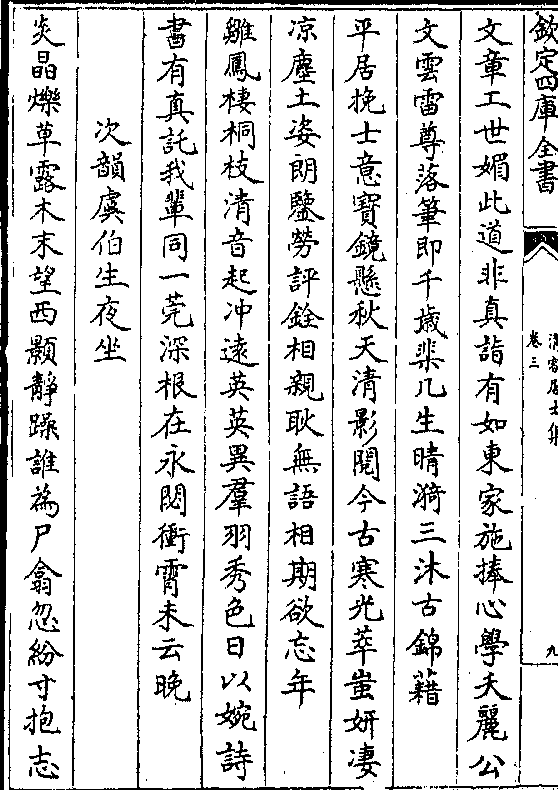 欽定四庫全書
卷三
九
文章工世媚此道非真詣有如東家施捧心學夭麗公
文雲雷尊落筆即千歲棐几生晴漪三沐古錦藉
平居挽士意寶鏡懸秋天清影閱今古寒光萃蚩妍凄
凉塵土姿朗鑒勞評銓相親耿無語相期欲忘年
雛鳳棲桐枝清音起冲遠英英異羣羽秀色日以婉詩
書有真託我輩同一莞深根在永閟衝霄未云晚
次韻虞伯生夜坐
炎晶爍草露木末望西顥靜躁誰為尸翕忽紛寸抱志